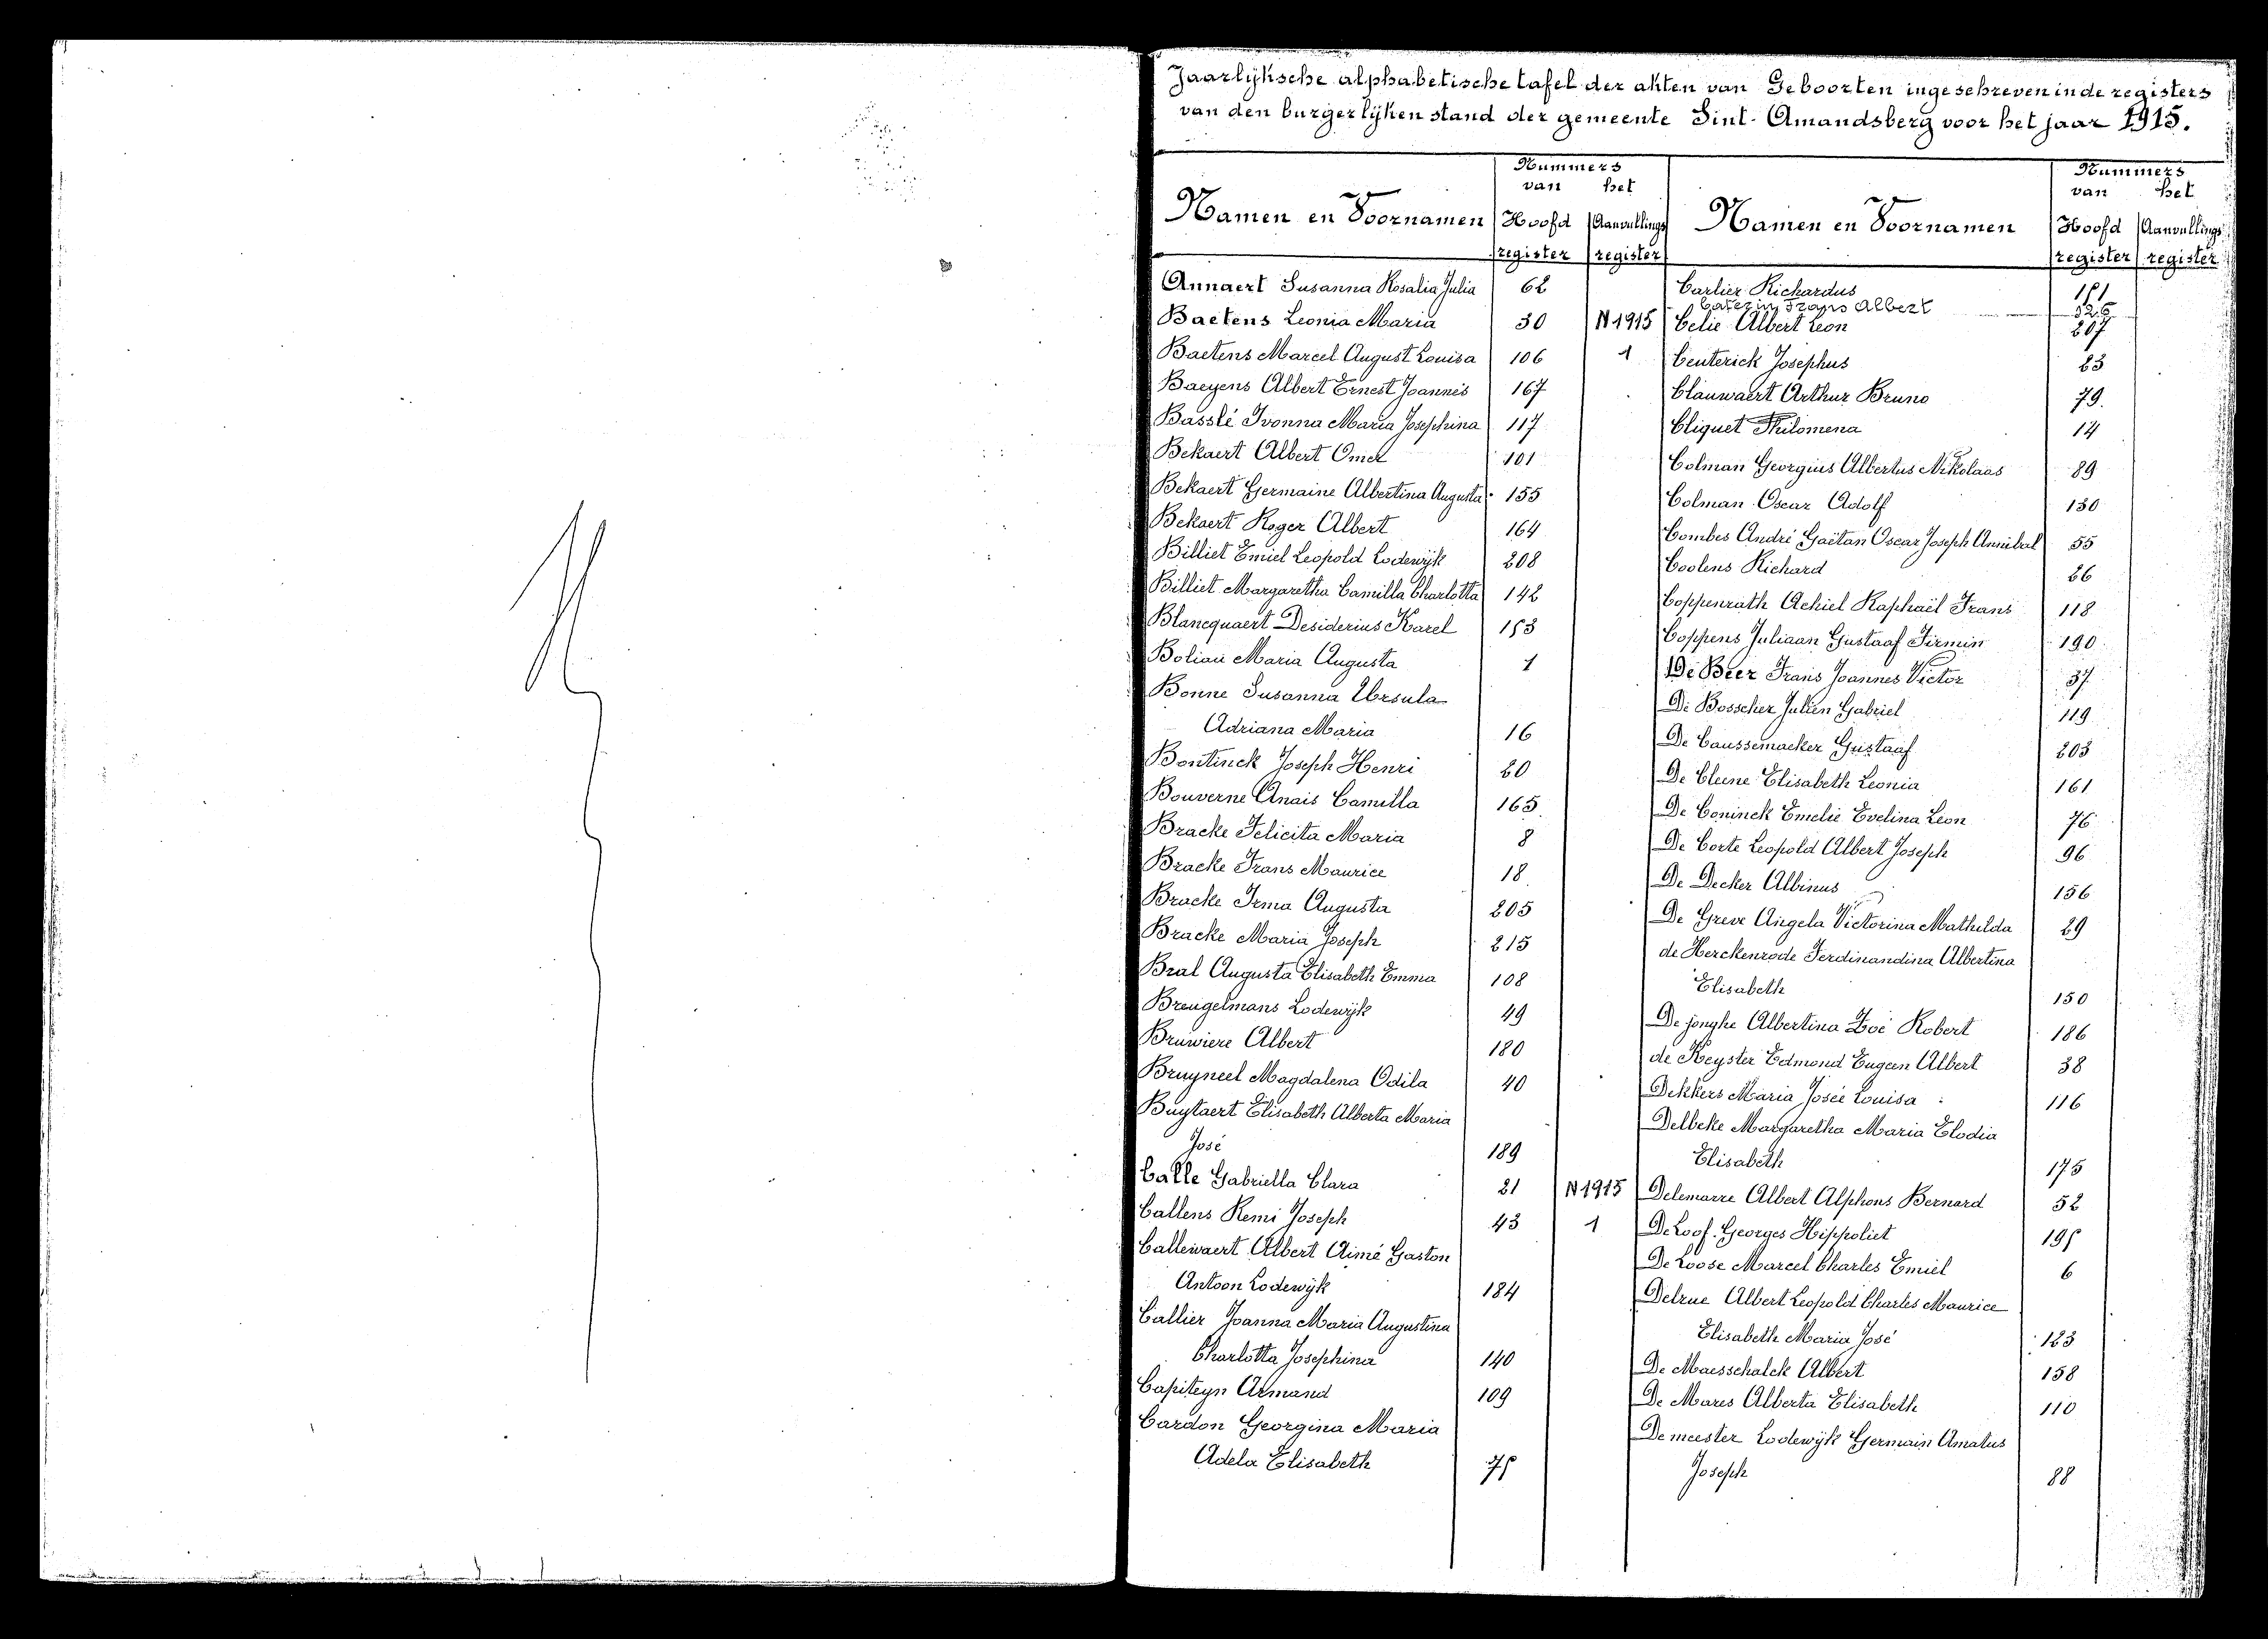 Jaarlijksche alphabetische tafel der akten van Geboorten ingeschreven in de registers
van den burgerlijken stand der gemeente Sint-Amandsberg voor het jaar 1915.
Namen en Voornamen
Nummers
van het
Hoofd register
Aanvullings register
Annaert Susanna Rosalia Julia 62
Baetens Leonia Maria 30 N 1915
Baetens Marcel August Louisa 106 1
Baeyens Albert Ernest Joannes 167
Basslé Ivonna Maria Josephina 117
Bekaert Albert Omer 101
Bekaert Germaine Albertina Augusta 155
Bekaert Roger Albert 164
Billiet Emiel Leopold Lodewijk 208
Billiet Margaretha Camilla Charlotta 142
Blancquaert Desiderius Karel 153
Boliau Maria Augusta 1
Bonne Susanna Ursula
Adriana Maria 16
Bontinck Joseph Henri 20
Bouverne Anais Camilla 165
Bracke Felicita Maria 8
Bracke Frans Maurice 18
Bracke Irma Augusta 205
Bracke Maria Joseph 215
Bral Augusta Elisabeth Emma 108
Breugelmans Lodewijk 49
Bruwiere Albert 180
Bruyneel Magdalena Odila 40
Buytaert Elisabeth Alberta Maria
José 189
Calle Gabriella Clara 21 N 1915
Callens Remi Joseph 43 1
Callewaert Albert Aimé Gaston
Antoon Lodewijk 184
Callier Joanna Maria Augustina
Charlotta Josephina 140
Capiteyn Armand 109
Cardon Georgina Maria
Adela Elisabeth
Namen en Voornamen
Nummers
van het
Hoofd register
Aanvullings register
Carlier Richardus
Caterin Frans Albert
Celie Albert Leon 207
Ceuterick Josephus 23
Clauwaert Arthur Bruno 79
Cliquet Philomena 14
Colman Georgius Albertus Nikolaas 89
Colman Oscar Adolf 130
Combes André Gaëtan Oscar Joseph Annibal 55
Coolens Richard 26
Coppenrath Achiel Raphaël Frans 118
Coppens Juliaan Gustaaf Firmin 190
De Beer Frans Joannes Victor 37
De Bosscher Julien Gabriel 119
De Caussemacker Gustaaf 203
De Cleene Elisabeth Leonia 161
De Coninck Emelie Evelina Leon 76
De Corte Leopold Albert Joseph 96
De Decker Albinus 156
De Greve Angela Victorina Mathilda 29
de Herckenrode Ferdinandina Albertina
Elisabeth 150
De jonghe Albertina Zoé Robert 186
de Keyster Edmond Eugeen Albert 38
Dekkers Maria Josée Louisa 116
Delbeke Margaretha Maria Elodia
Elisabeth 175
Delemarre Albert Alphons Bernard 52
De Loof Georges Hippoliet
De Loose Marcel Charles Emiel 6
Delrue Albert Leopold Charles Maurice
Elisabeth Maria José 123
De Maesschalck Albert 158
De Mares Alberta Elisabeth 110
De meester Lodewijk Germain Amatus
Joseph 88